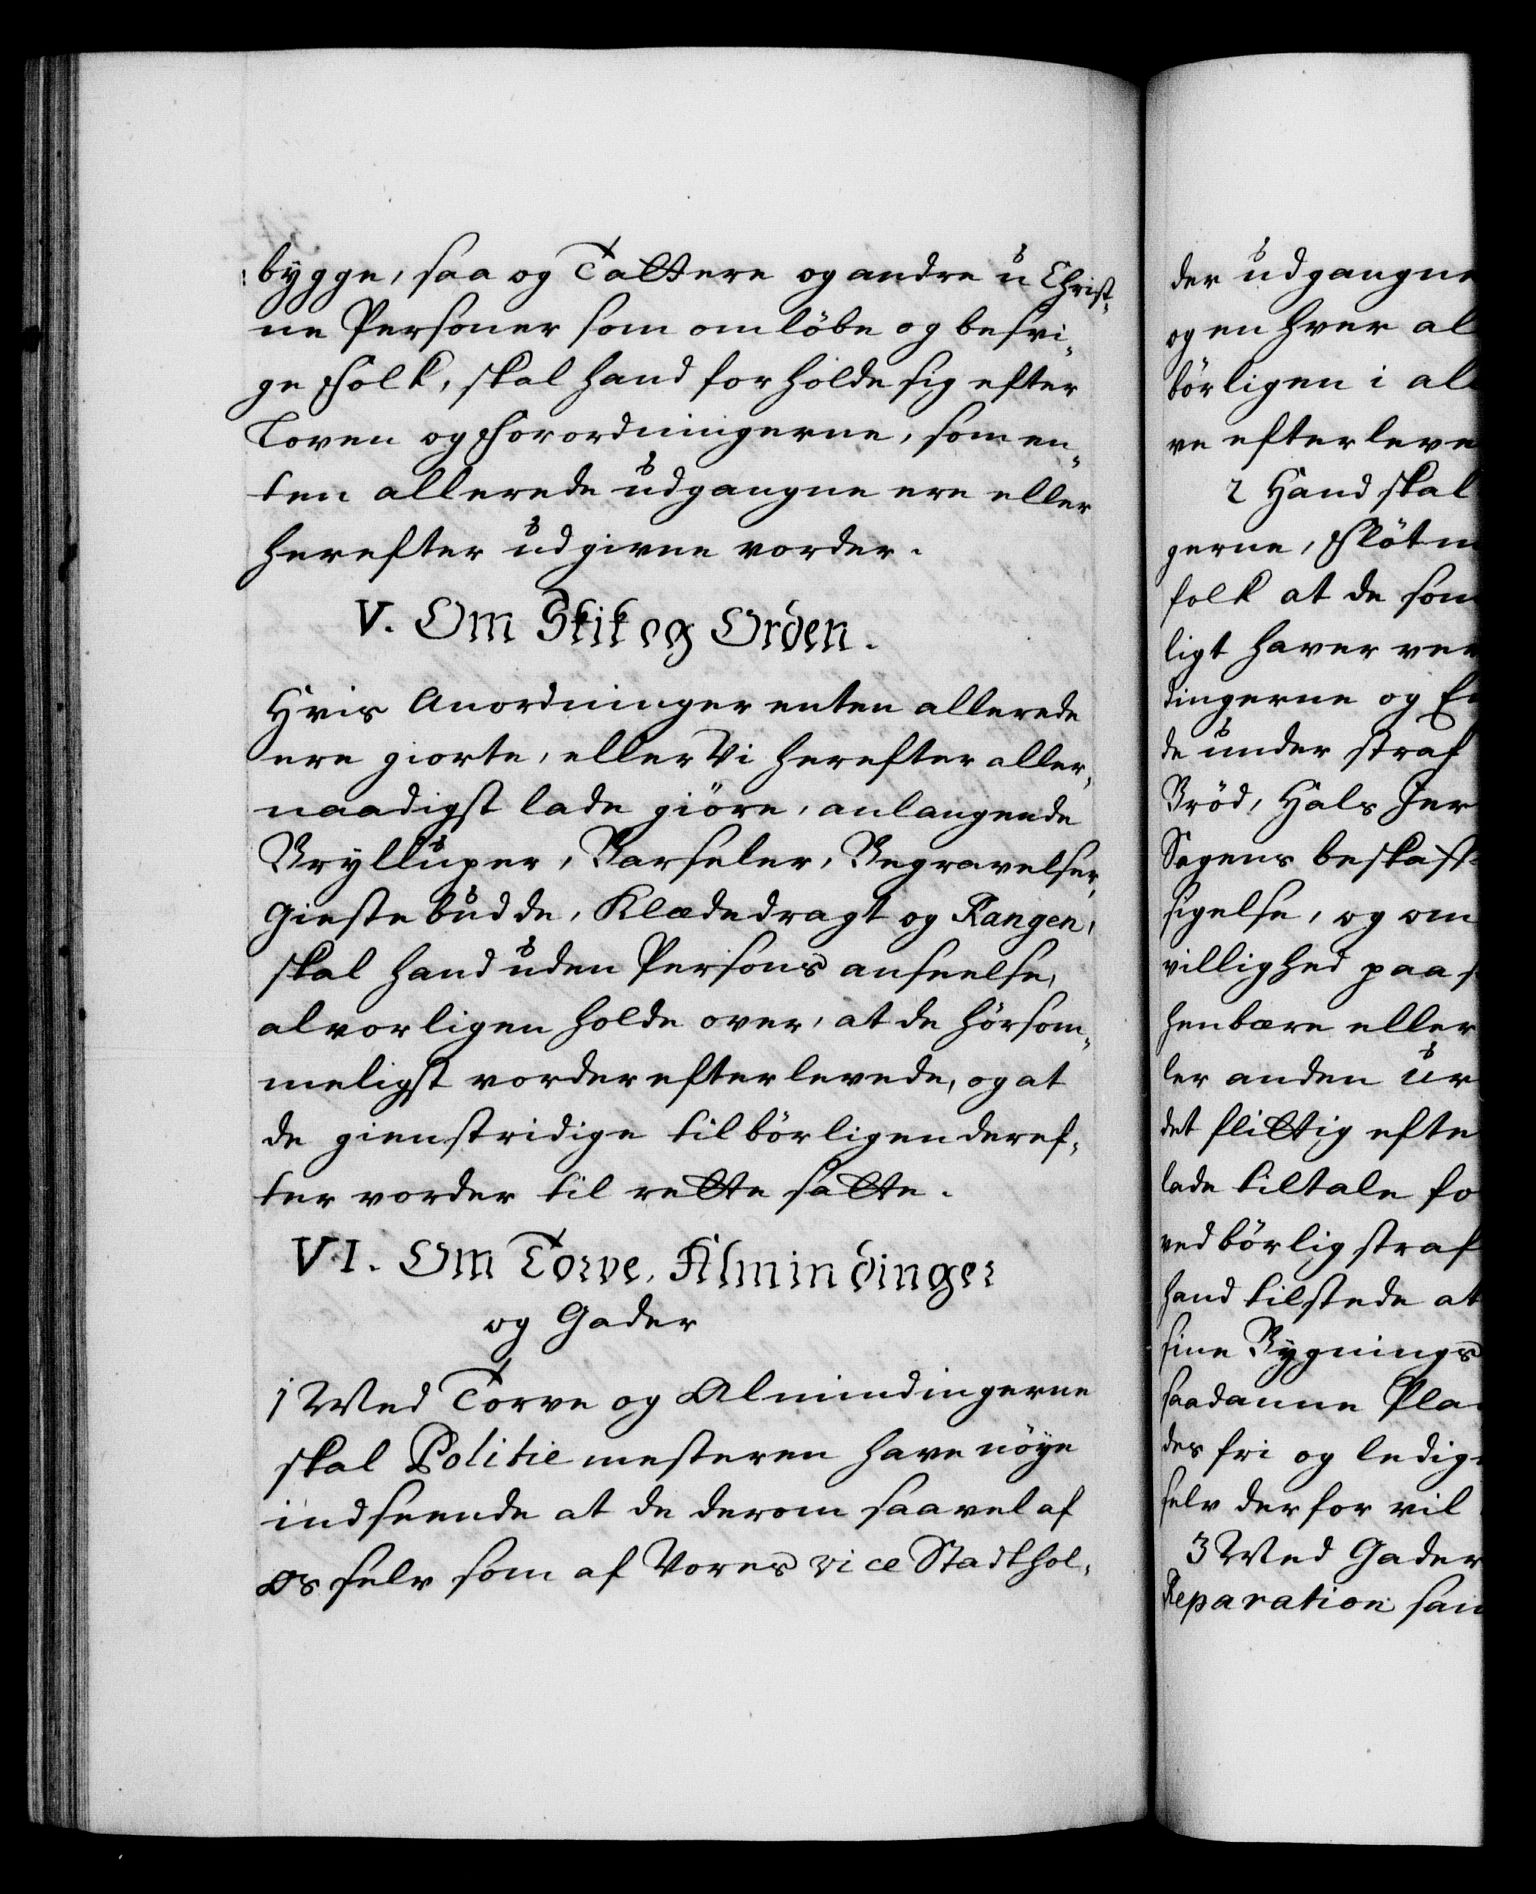 bygge, saa og Tattere og andre u Christ-
ne Personer som omløbe og besvi-
ge Folk, skal hand forholde sig efter
Loven og Forordningerne, som en-
ten allerede udgangne ere eller
herefter udgivne vorder.
V. Om Skik og Orden.
Hvis Anordninger enten allerede
ere giorte, eller Vi herefter aller-
naadigst lade giöre, anlangende
Brylluper, Barseler, Begravelser,
Giestebudde, Klædedragt og Rangen,
skal hand uden Persons anseelse,
alvorligen holde over, at de hörsom-
meligst vorder efterlevede, og at
de gienstridige tilbörligen deref-
ter vorder til rette satte.
VI. Om Torve, Almindinger
og Gader
1 Med Torve og Almindingerne
skal Politie mesteren have nöye
indseende at de derom saavel af
os selv som af Vores vice Stadthol-
der udgangne
og en hver al
börligen i al
ve efterleve
2 Hand skal
gerne, Flötm
folk at de som
ligt haver ver
dingerne og
de under straf
Bröd, Hals Jer
Sagens beskaf
sigelse, og om
villighed paa
henbære eller
ler anden ur
det flittig efte
lade tiltale fo
ved börlig straf
hand tilstede at
sine Bygnings
saadanne Pla
des fri og ledig
selv derfor vil
3 Med Gader
Reparation sa